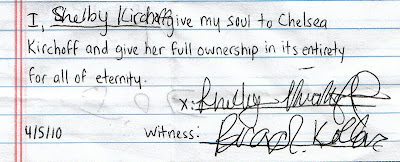 I, Shelby Kirchoff give my soul to Chelsea
Kirchoff and give her full ownership in its entirety
for all of eternity.
x: Shelby Kirchoff
4/5/10 witness: